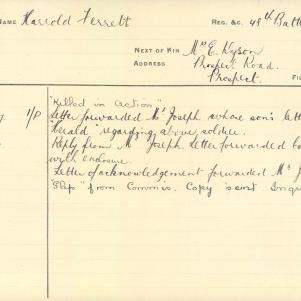 NAME Harrold Ferrett REG. &C. 48th Batt
NEXT OF KIN Mrs E. Kyson
ADDRESS Prospect Road.
Prospect.
"Killed in Action"
1/P Letter forwarded Mr Joseph whose son's lett
Herald" regarding above soldier.
Reply from Mr Joseph. Letter forwarded
with enclosure.
Letter of acknowledgement forwarded Mr J
"Slip" from Commis. Copy sent Inqu